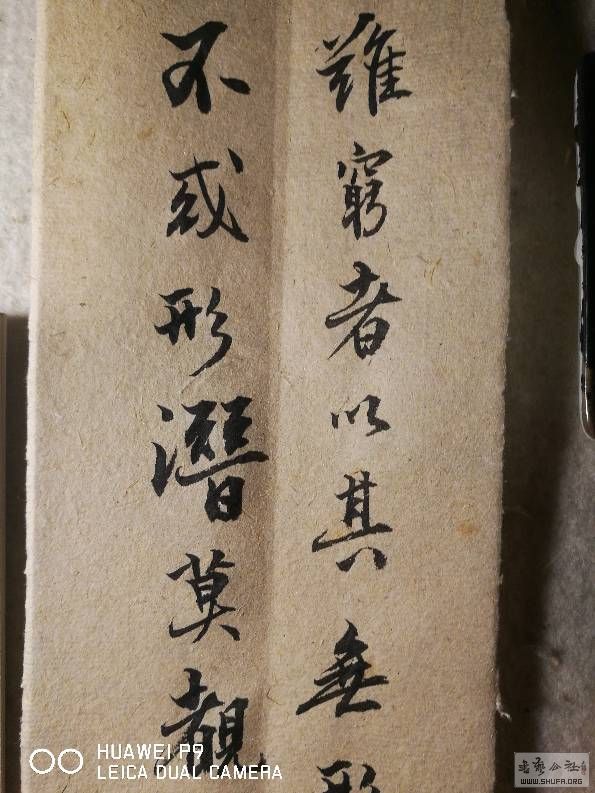 難窮者以其無形
不惑形潛莫覩
HUAWEI P9
LEICA DUAL CAMERA
书艺公社
WWW.SHUFA.ORG